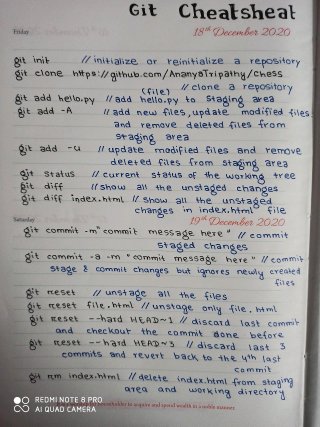 Git Cheatsheat
Friday 18th December 2020
git init // initialize or reinitialize a repository
git clone https://github.com/AnanyaTripathy/Chess
// clone a repository
(file)
git add hello.py // add hello.py to staging area
git add -A // add new files, update modified files
and remove deleted files from
staging area
git add -u // update modified files and remove
deleted files from staging area
git status // current status of the working tree
git diff // show all the unstaged changes
git diff index.html // show all the unstaged
changes in index.html file
Saturday 19th December 2020
git commit -m "commit message here" // commit
staged changes
git commit -a -m "commit message here" // commit
stage & commit changes but ignores newly created
files
git reset // unstage all the files
git reset file.html // unstage only file.html
git reset --hard HEAD~1 // discard last commit
and checkout the commit done before
git reset --hard HEAD~3 // discard last 3
commits and revert back to the 4th last
commit
git rm index.html // delete index.html from staging
area and working directory
householder to acquire and spend wealth in a noble manner.
REDMI NOTE 8 PRO
AI QUAD CAMERA